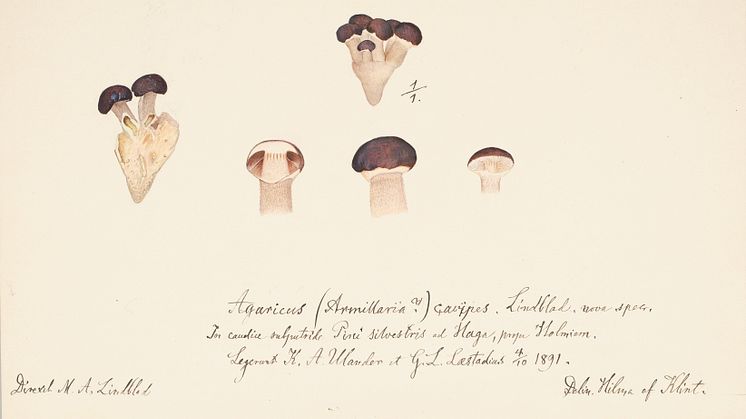 1/1.
Agaricus (Armillaria?) cavipes. Lindblad. nova spec.
In caudice subputrido Pini silvestris ad Haga, prope Holmiam.
Legerunt K. A. Ulander et G. L. Læstadius 4/10 1891.
Direxit M. A. Lindblad
Delin. Hilma af Klint.